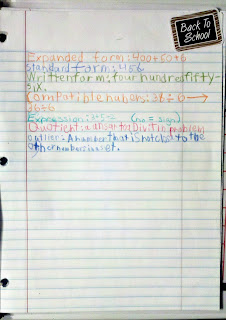 Back To
School
Expanded form: 400+50+6
Standard form: 456
Written form: four hundred fifty-
six.
Compatible numbers: 38 ÷ 6 →
36÷6
Expression: 3+5 (no = sign)
Quotient: a
problem
outlier: A number that is not close to the
other numbers in a set.